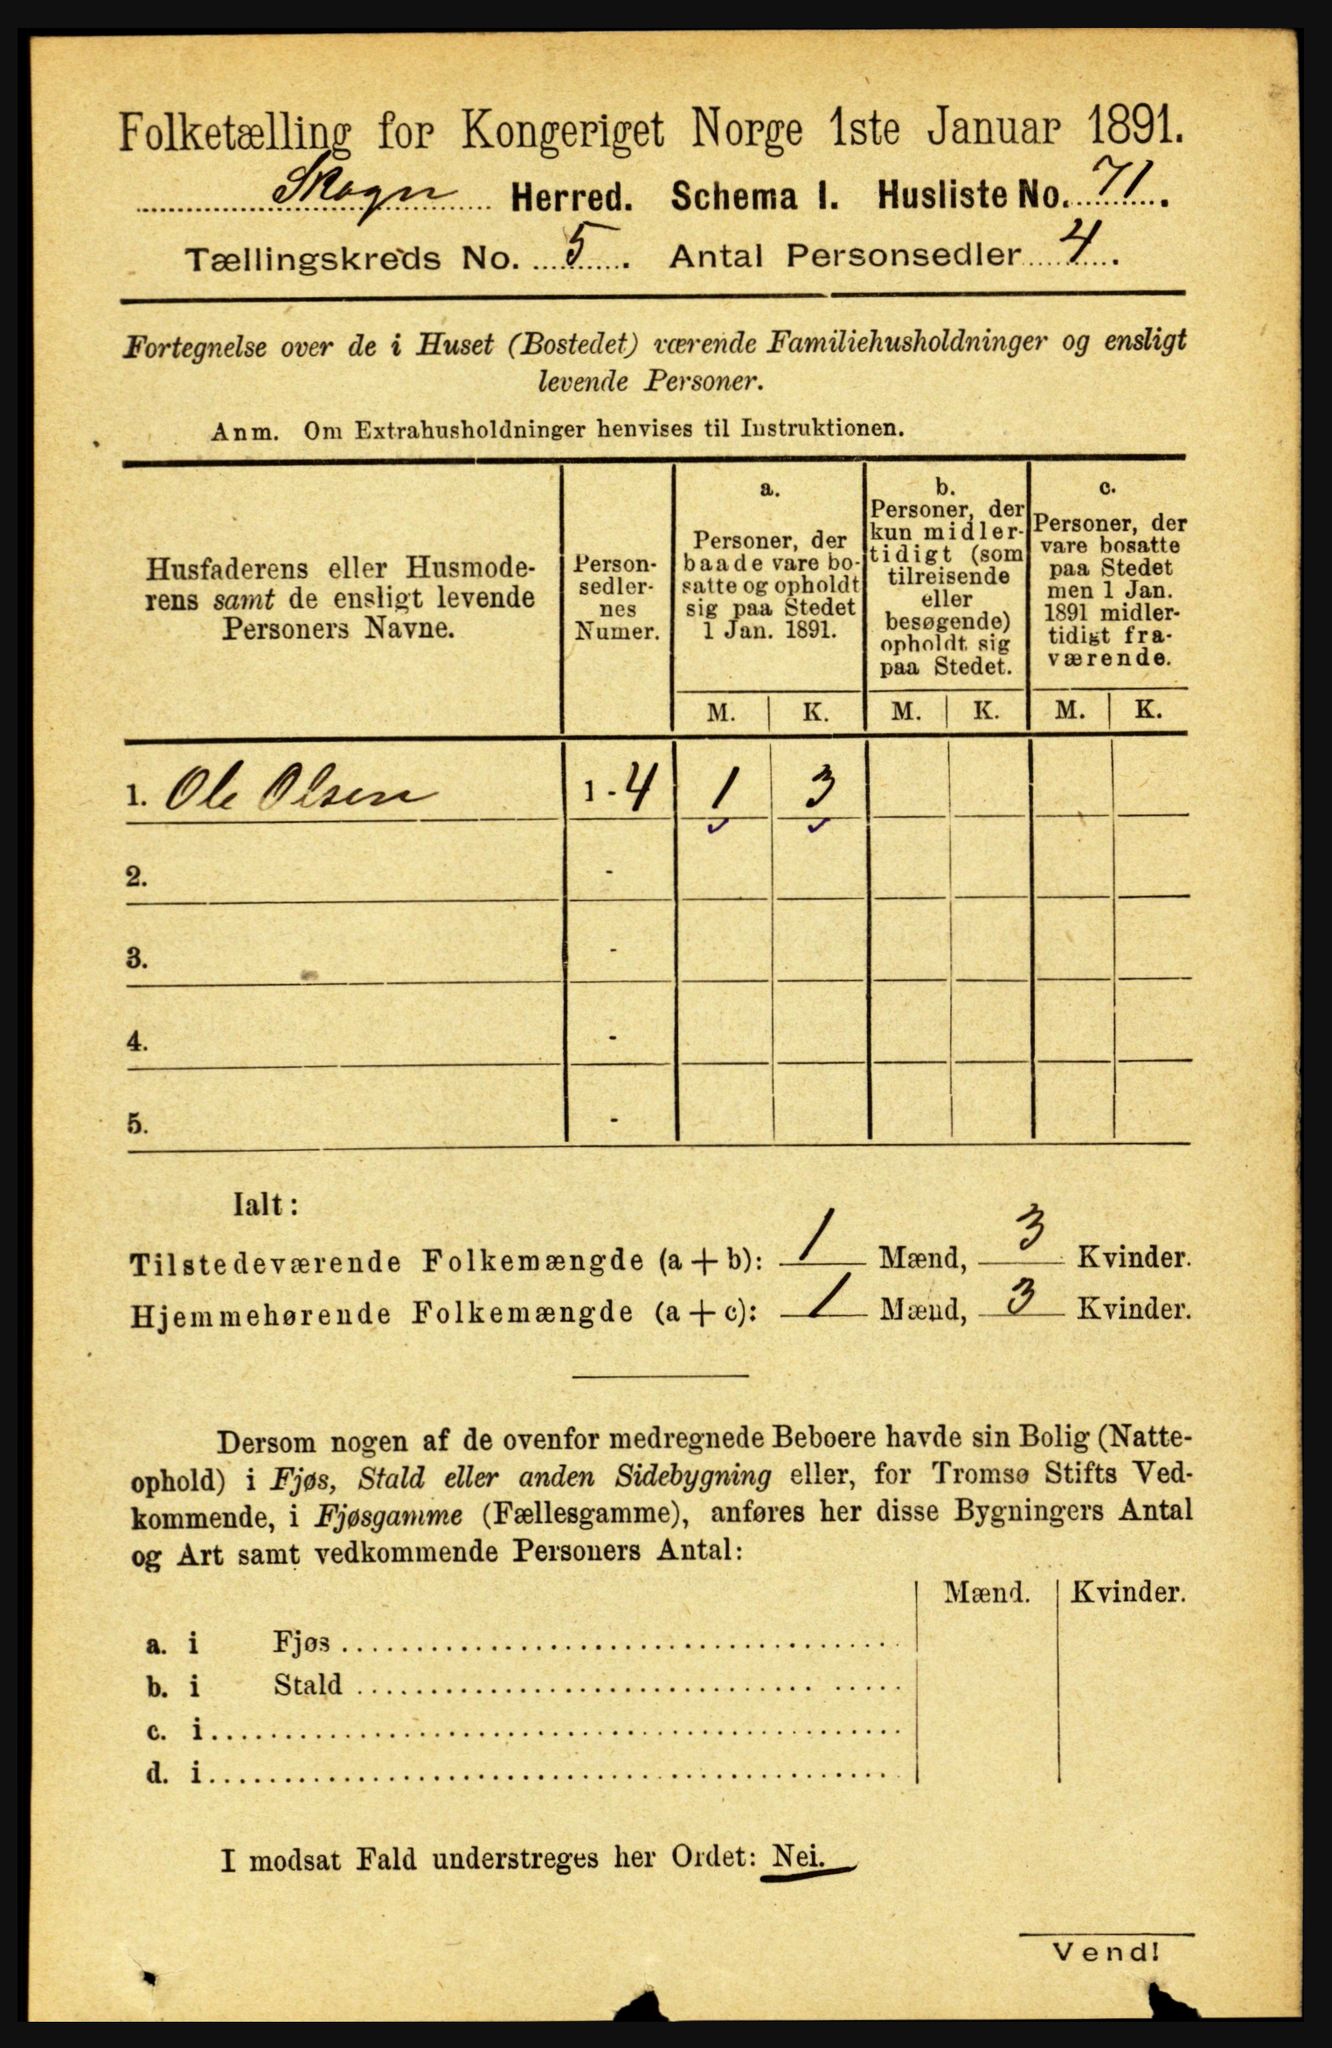 Folketælling for Kongeriget Norge 1ste Januar 1891.
Skogn Herred. Schema I. Husliste No. 71.
Tællingskreds No. 5. Antal Personsedler 4.
Fortegnelse over de i Huset (Bostedet) værende Familiehusholdninger og ensligt
levende Personer.
Anm. Om Extrahusholdninger henvises til Instruktionen.
Husfaderens eller Husmode-
rens samt de ensligt levende
Personers Navne.
Person-
sedler-
nes
Numer.
a.
Personer, der
baade vare bo-
satte og opholdt
sig paa Stedet
1 Jan. 1891.
b.
Personer, der
kun midler-
tidigt (som
tilreisende
eller
besøgende)
opholdt sig
paa Stedet.
c.
Personer, der
vare bosatte
paa Stedet
men 1 Jan.
1891 midler-
tidigt fra-
værende.
M. K. M. K. M. K.
1. Ole Olsen 1-4 1 3
2. -
3. -
4. -
5. -
Ialt:
Tilstedeværende Folkemængde (a+b): 1 Mænd, 3 Kvinder.
Hjemmehørende Folkemængde (a+c): 1 Mænd, 3 Kvinder.
Dersom nogen af de ovenfor medregnede Beboere havde sin Bolig (Natte-
ophold) i Fjøs, Stald eller anden Sidebygning eller, for Tromsø Stifts Ved-
kommende, i Fjøsgamme (Fællesgamme), anføres her disse Bygningers Antal
og Art samt vedkommende Personers Antal:
Mænd. Kvinder.
a. i Fjøs
b. i Stald
c. i
d. i
I modsat Fald understreges her Ordet: Nei.
Vend!